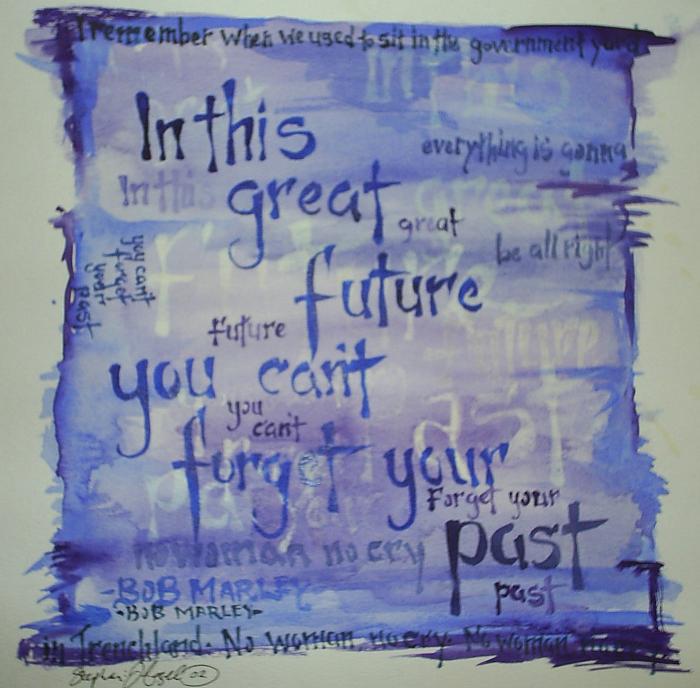 I remember when we used to sit in the government yard
In this
everything is gonna
In this
great
great
be all right
you can't
forget
your
past
future
future
you can't
you
can't
forget your
Forget your
past
no woman no cry
past
-BOB MARLEY
-BOB MARLEY-
in Trenchland. No woman, no cry. No woman
02